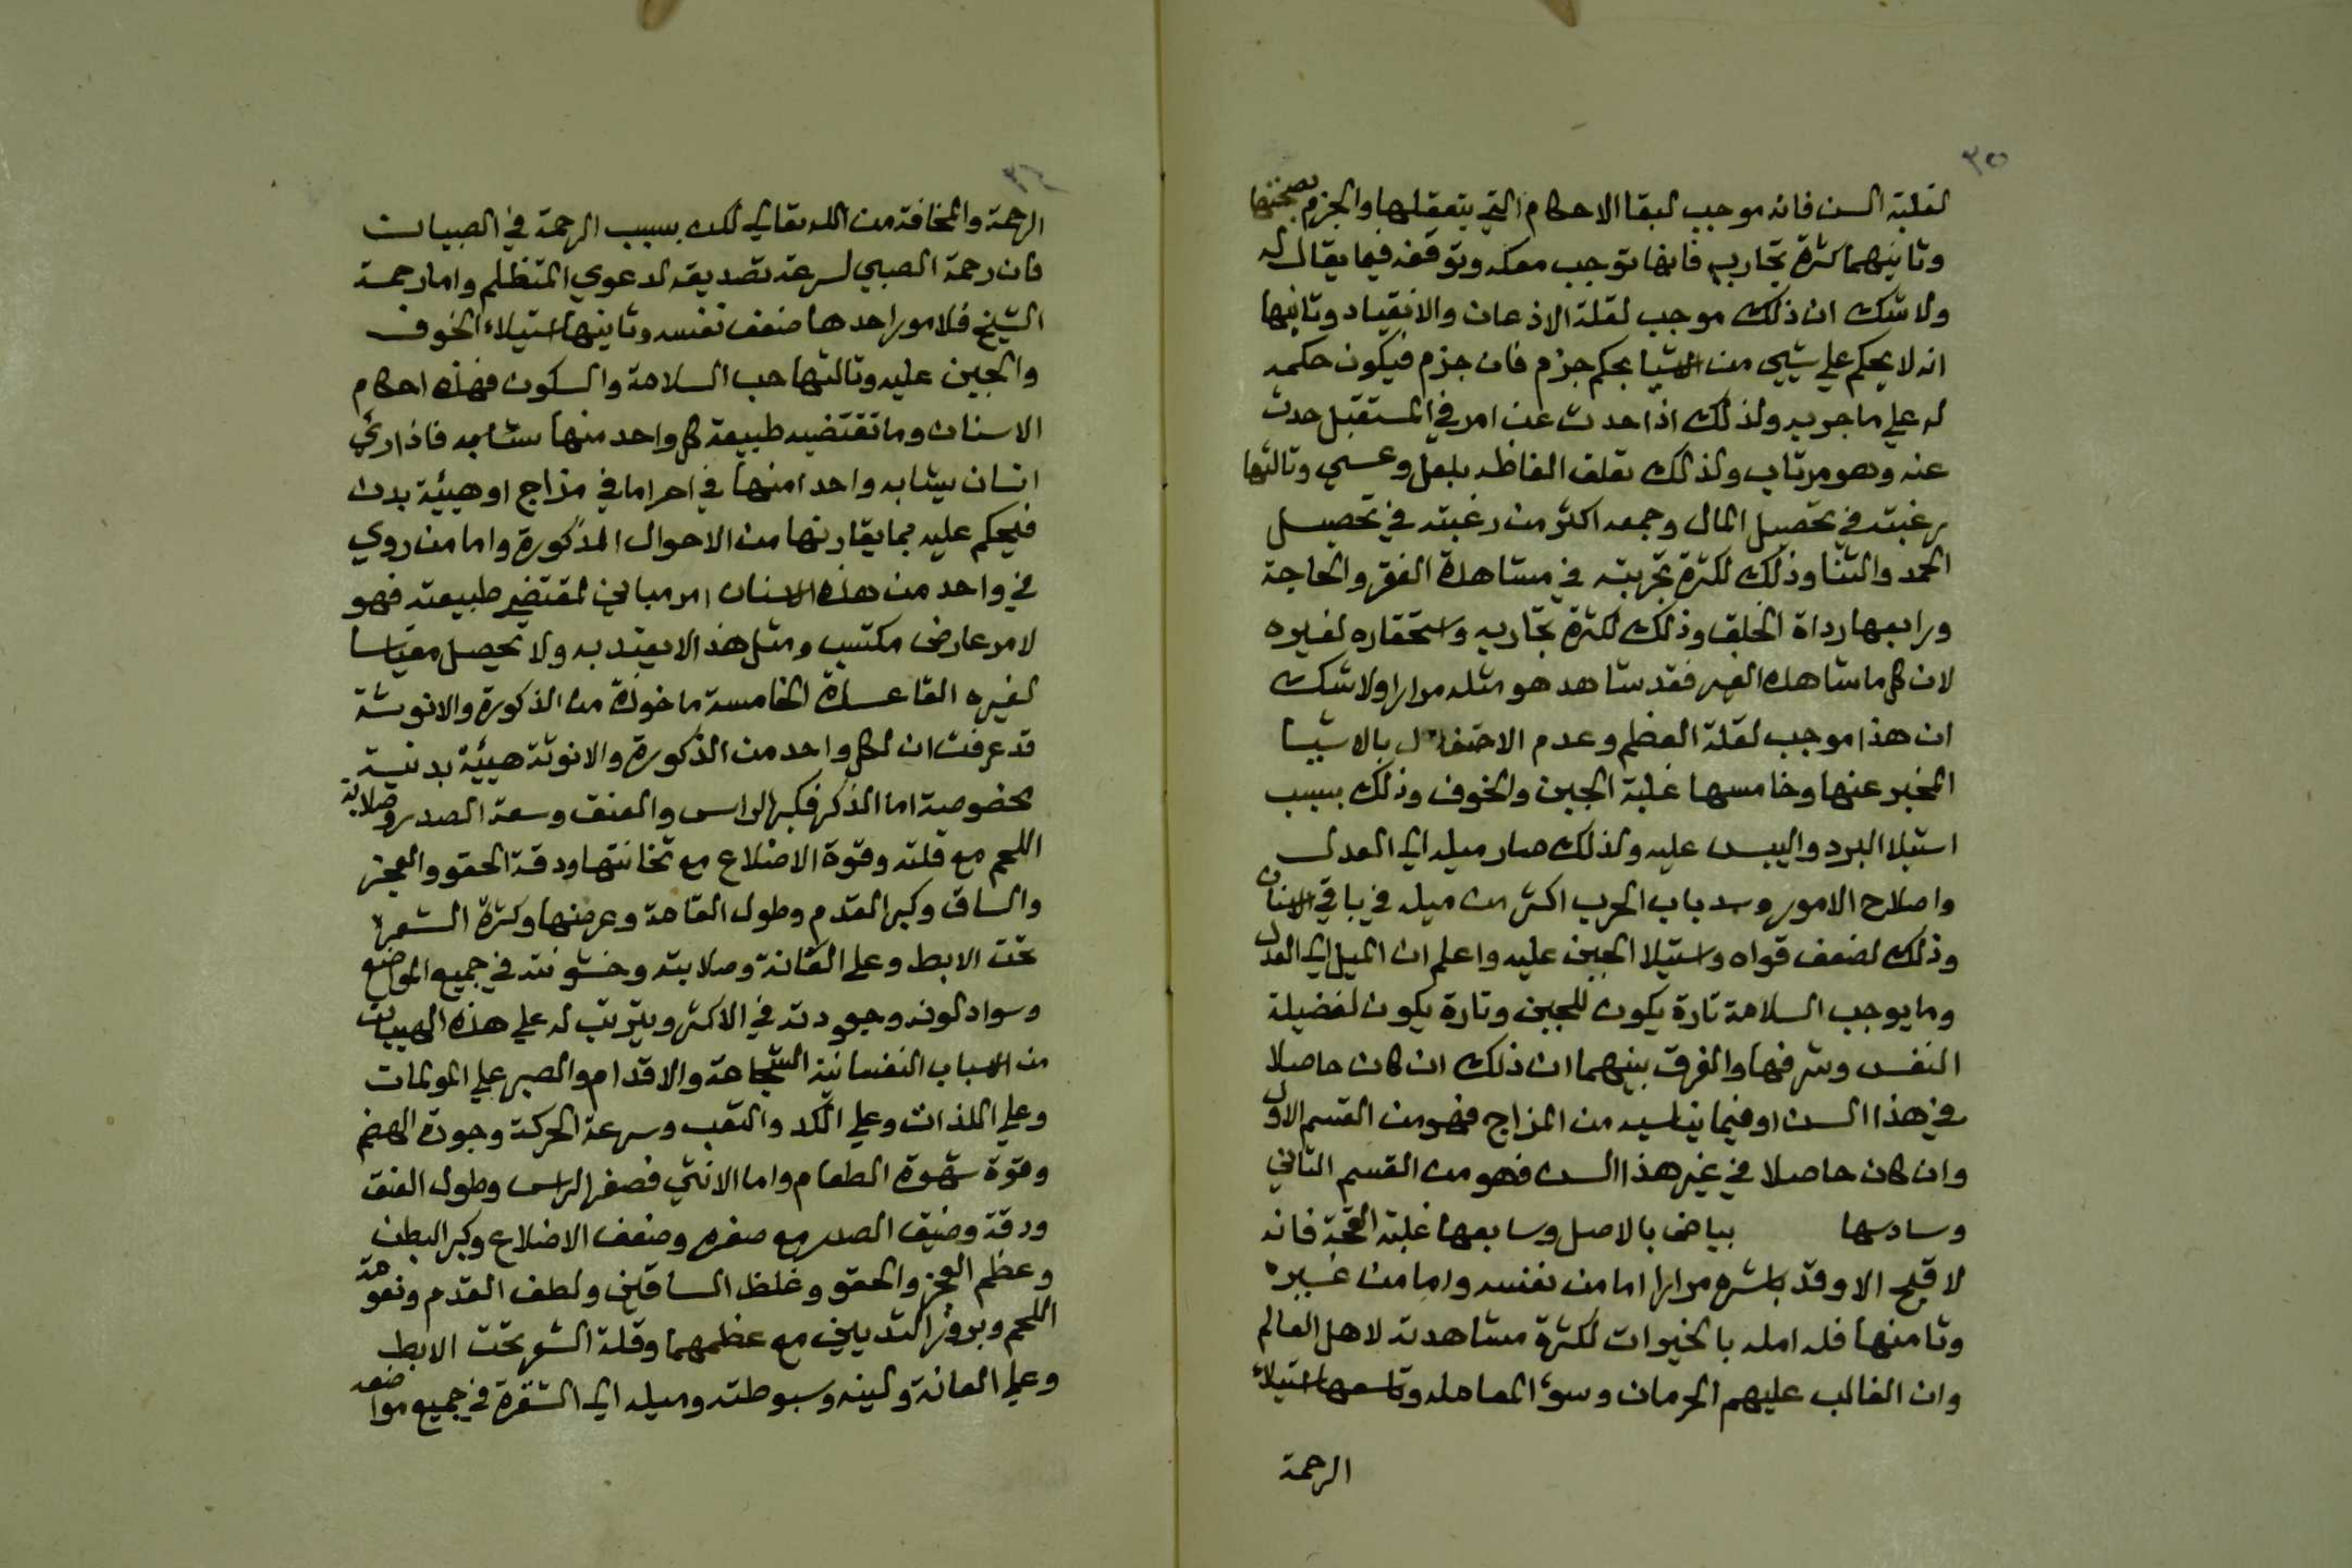 ٣٥
لغلبة السن فانه موجب لبقا الاحكام التي يتعقلها والجزم بصحتها
وثانيهما كثرة تجاربه فانها توجب معكه وتوقفه فيما يقال له
ولا شك ان ذلك موجب لقلة الاذعان والانقياد وثانيها
انه لا يحكم علي شيي من الاشيا بحكم جزم فان جزم فيكون حكمه
له علي ما جربه ولذلك اذا حدث عن امر في المستقبل حدث
عنه وهو مرتاب ولذلك تعلف الفاظه بلعل وعسي وثالثها
رغبته في تحصيل المال وجمعه اكثر من رغبته في تحصيل
الحمد والثنا وذلك لكثرة تجربته في مشاهدة الفقر والحاجة
ورابعها رداة الخلق وذلك لكثرة تجاربه واستحقاره لغيره
لان كل ما شاهده الغير فقد شاهد هو مثله مرارا ولا شك
ان هذا موجب لقلة العظم وعدم الاحتفال بالاشيا
المخبر عنها وخامسها غلبة الجبن والخوف وذلك بسبب
استيلا البرد واليبس عليه ولذلك صار ميله الي العدل
واصلاح الامور وسد باب الحرب اكثر من ميله في باقي الاسنان
وذلك لضعف قواه واستيلا الجبن عليه واعلم ان الميل الي العدل
وما يوجب السلامة تارة يكون للجبن وتارة يكون لفضيلة
النفس وشرفها والفرق بينهما ان ذلك ان كان حاصلا
في هذا السن او فيما يناسبه من المزاج فهو من القسم الاول
وان كان حاصلا في غير هذا السن فهو من القسم الثاني
وسادسها بياض بالاصل وسابعها غلبة القحة فانه
لا قبح الا وقد باشره مرارا اما من نفسه واما من غيره
وثامنها قله امله بالخيرات لكثرة مشاهدته لاهل العالم
وان الغالب عليهم الحرمان وسوء المعامله وتاسعها استيلاء
الرحمة
٣٦
الرحمة والمخافة من الله تعالي لكن بسبب الرحمة في الصبيان
فان رحمة الصبي لسرعة تصديقه لدعوي المتظلم واما رحمة
الشيخ فلامور احدها ضعف نفسه وثانيها استيلاء الخوف
والجبن عليه وثالثها حب السلامة والسكون فهذه احكام
الاسنان وما تقتضيه طبيعة كل واحد منها ستامه فاذا رئي
انسان يشابه واحدا منها في امر اما في مزاج او هيئة بدن
فيحكم عليه بما يقارنها من الاحوال المذكورة واما من روي
في واحد من هذه الاسنان امر مباني لمقتضي طبيعته فهو
لامر عارض مكتسب ومثل هذا لا يعتد به ولا تحصل مقياسا
لغيره القاعدة الخامسة ماخوذة من الذكورة والانوثة
قد عرفت ان لكل واحد من الذكورة والانوثة هيئة بدنية
مخصوصة اما الذكر فكبر الراس والعنق وسعة الصدر وصلابة
اللحم مع قلته وقوة الاضلاع مع ثخانتها ودقة الحقو والعجز
والساق وكبر القدم وطول القامة وعرضها وكثرة الشعر
تحت الابط وعلي العانة وصلابته وخشونته في جميع المواضع
وسواد لونه وجعودته في الاكثر ويترتب له علي هذه الهييات
من الاسباب النفسانية الشجاعة والاقدام والصبر علي المولمات
وعلي اللذات وعلي الكد والتعب وسرعة الحركة وجودة الهضم
وقوة شهوة الطعام واما الانثي فصغر الراس وطول العنق
ودقة وضيق الصدر مع صغره وضعف الاضلاع وكبر البطن
وعظم العجز والحقو وغلظ الساقين ولطف القدم ونعومة
اللحم وبروز الثديين مع عظمهما وقلة الشعر تحت الابط
وعلي العانة ولينه وسبوطته وميله الي الشقرة في جميع مواضعه